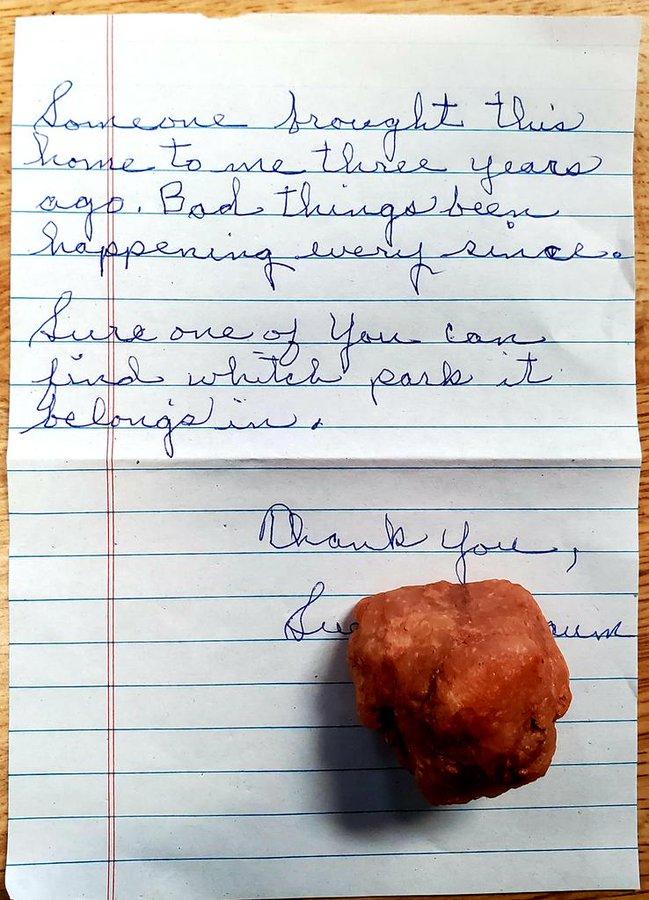 Someone brought this
home to me three years
ago. Bad things been
happening every since.
Sure one of You can
find whitch park it
belongs in.
Thank You,